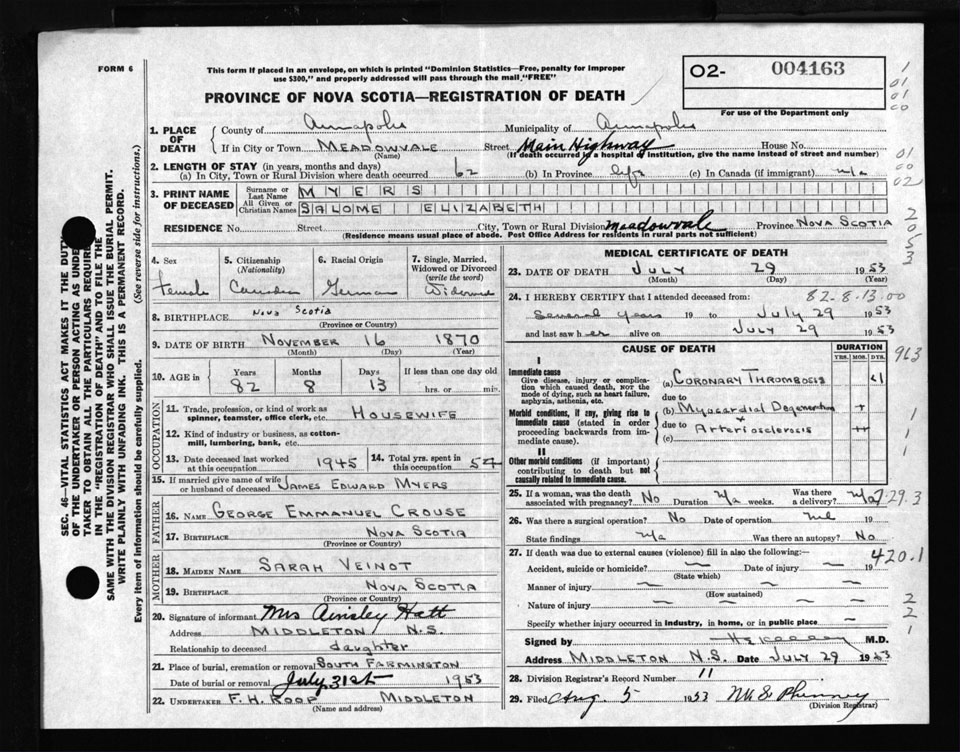 FORM 6
This form if placed in an envelope, on which is printed "Dominion Statistics—Free, penalty for improper
use $300," and properly addressed will pass through the mail "FREE"
O2- 004163
For use of the Department only
PROVINCE OF NOVA SCOTIA—REGISTRATION OF DEATH
1. PLACE OF DEATH
County of Annapolis Municipality of Annapolis
If in City or Town MEADOWVALE Street Main Highway House No.
(Name) (If death occurred in a hospital or institution, give the name instead of street and number)
2. LENGTH OF STAY (in years, months and days)
(a) In City, Town or Rural Division where death occurred 62 (b) In Province life (c) In Canada (if immigrant) n/a
3. PRINT NAME OF DECEASED
Surname or Last Name MYERS
All Given or Christian Names SALOME ELIZABETH
RESIDENCE No. Street City, Town or Rural Division Meadowvale Province NOVA SCOTIA
(Residence means usual place of abode. Post Office Address for residents in rural parts not sufficient)
4. Sex
female
5. Citizenship
(Nationality)
Canadian
6. Racial Origin
German
7. Single, Married,
Widowed or Divorced
(write the word)
Widowed
8. BIRTHPLACE Nova Scotia
(Province or Country)
9. DATE OF BIRTH NOVEMBER 16 1870
(Month) (Day) (Year)
10. AGE in
Years Months Days If less than one day old
82 8 13 hrs. or min.
OCCUPATION
11. Trade, profession, or kind of work as
spinner, teamster, office clerk, etc. HOUSEWIFE
12. Kind of industry or business, as cotton-
mill, lumbering, bank, etc.
13. Date deceased last worked
at this occupation 1945
14. Total yrs. spent in
this occupation 54
15. If married give name of wife
or husband of deceased JAMES EDWARD MYERS
FATHER
16. NAME GEORGE EMMANUEL CROUSE
17. BIRTHPLACE NOVA SCOTIA
(Province or Country)
MOTHER
18. MAIDEN NAME SARAH VEINOT
19. BIRTHPLACE NOVA SCOTIA
(Province or Country)
20. Signature of informant Mrs Ainsley Hatt
Address MIDDLETON N.S.
Relationship to deceased daughter
21. Place of burial, cremation or removal SOUTH FARMINGTON
Date of burial or removal July 31st 1953
22. UNDERTAKER F. H. ROOP MIDDLETON
(Name and address)
MEDICAL CERTIFICATE OF DEATH
23. DATE OF DEATH JULY 29 1953
(Month) (Day) (Year)
24. I HEREBY CERTIFY that I attended deceased from: 82-8-13.00
Several years 19 to JULY 29 1953
and last saw her alive on JULY 29 1953
CAUSE OF DEATH
DURATION
YRS. MOS. DYS.
I
Immediate cause
Give disease, injury or complica-
tion which caused death, NOT the
mode of dying, such as heart failure,
asphyxia, asthenia, etc.
(a) CORONARY THROMBOSIS <1
due to
Morbid conditions, if any, giving rise to
immediate cause (stated in order
proceeding backwards from im-
mediate cause).
(b) Myocardial Degeneration +
due to Arteriosclerosis ++
(c)
II
Other morbid conditions (if important)
contributing to death but not
causally related to immediate cause.
25. If a woman, was the death
associated with pregnancy? No Duration n/a weeks. Was there
a delivery? n/a
26. Was there a surgical operation? No Date of operation nil 19
State findings n/a Was there an autopsy? No
27. If death was due to external causes (violence) fill in also the following:—
Accident, suicide or homicide? Date of injury 19
(State which)
Manner of injury
(How sustained)
Nature of injury
Specify whether injury occurred in industry, in home, or in public place
Signed by M.D.
Address MIDDLETON N.S. Date JULY 29 1953
28. Division Registrar's Record Number 11
29. Filed Aug. 5 1953 Phinney
(Division Registrar)
1
01
01
00
01
00
02
2
0
5
3
963
1
1
7.29.3
420.1
2
2
1
SEC. 46—VITAL STATISTICS ACT MAKES IT THE DUTY
OF THE UNDERTAKER OR PERSON ACTING AS UNDER-
TAKER TO OBTAIN ALL THE PARTICULARS REQUIRED
IN THE "REGISTRATION OF DEATH" AND TO FILE THE
SAME WITH THE DIVISION REGISTRAR WHO SHALL ISSUE THE BURIAL PERMIT.
WRITE PLAINLY WITH UNFADING INK. THIS IS A PERMANENT RECORD.
Every item of information should be carefully supplied. (See reverse side for instructions.)